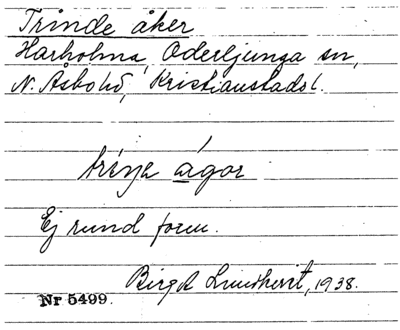 Trinde åker
Harholma, Oderljunga sn,
N. Åsbo hd, Kristianstads l.
trina ágor
Ej rund form.
Birgit Lundkvist, 1938.
Nr 5499.